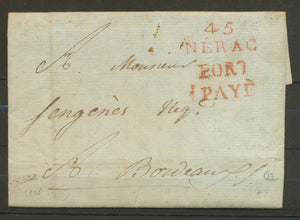 45
NÉRAC
PORT
PAYÉ
A Monsieur
fengenès Neg.
A Bordeaux